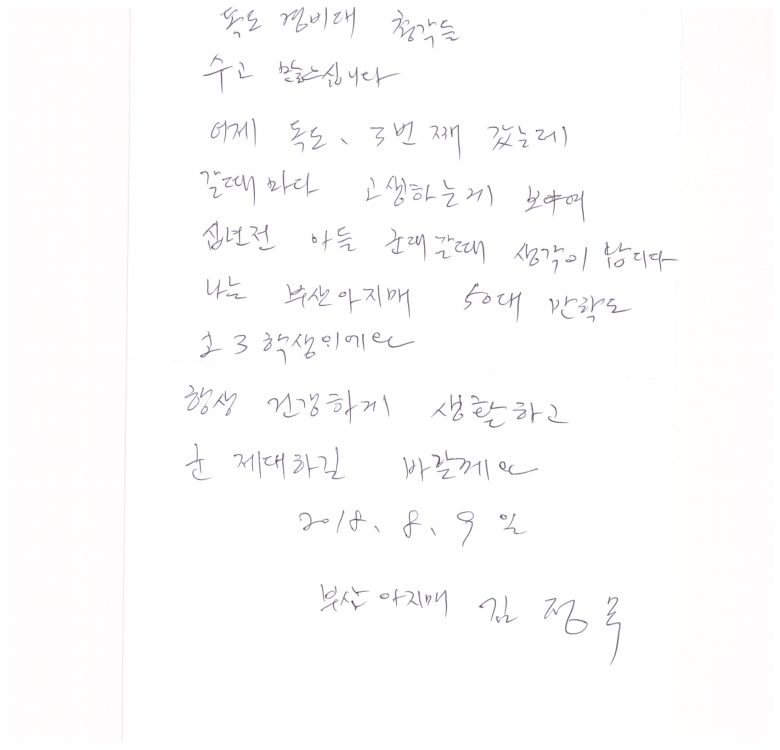 독도 경비대 청각들
수고 많느십니다
어제 독도、3번 째 갔는데
갈때 마다 고생하는게 보여
십년전 아들 군대갈때 생각이 남니다
나는 부산아지매 50대 만학도
고3학생이에요
항상 건강하게 생활하고
군 제대하길 바랄께요
2018、8、9일
부산 아지매 김 정